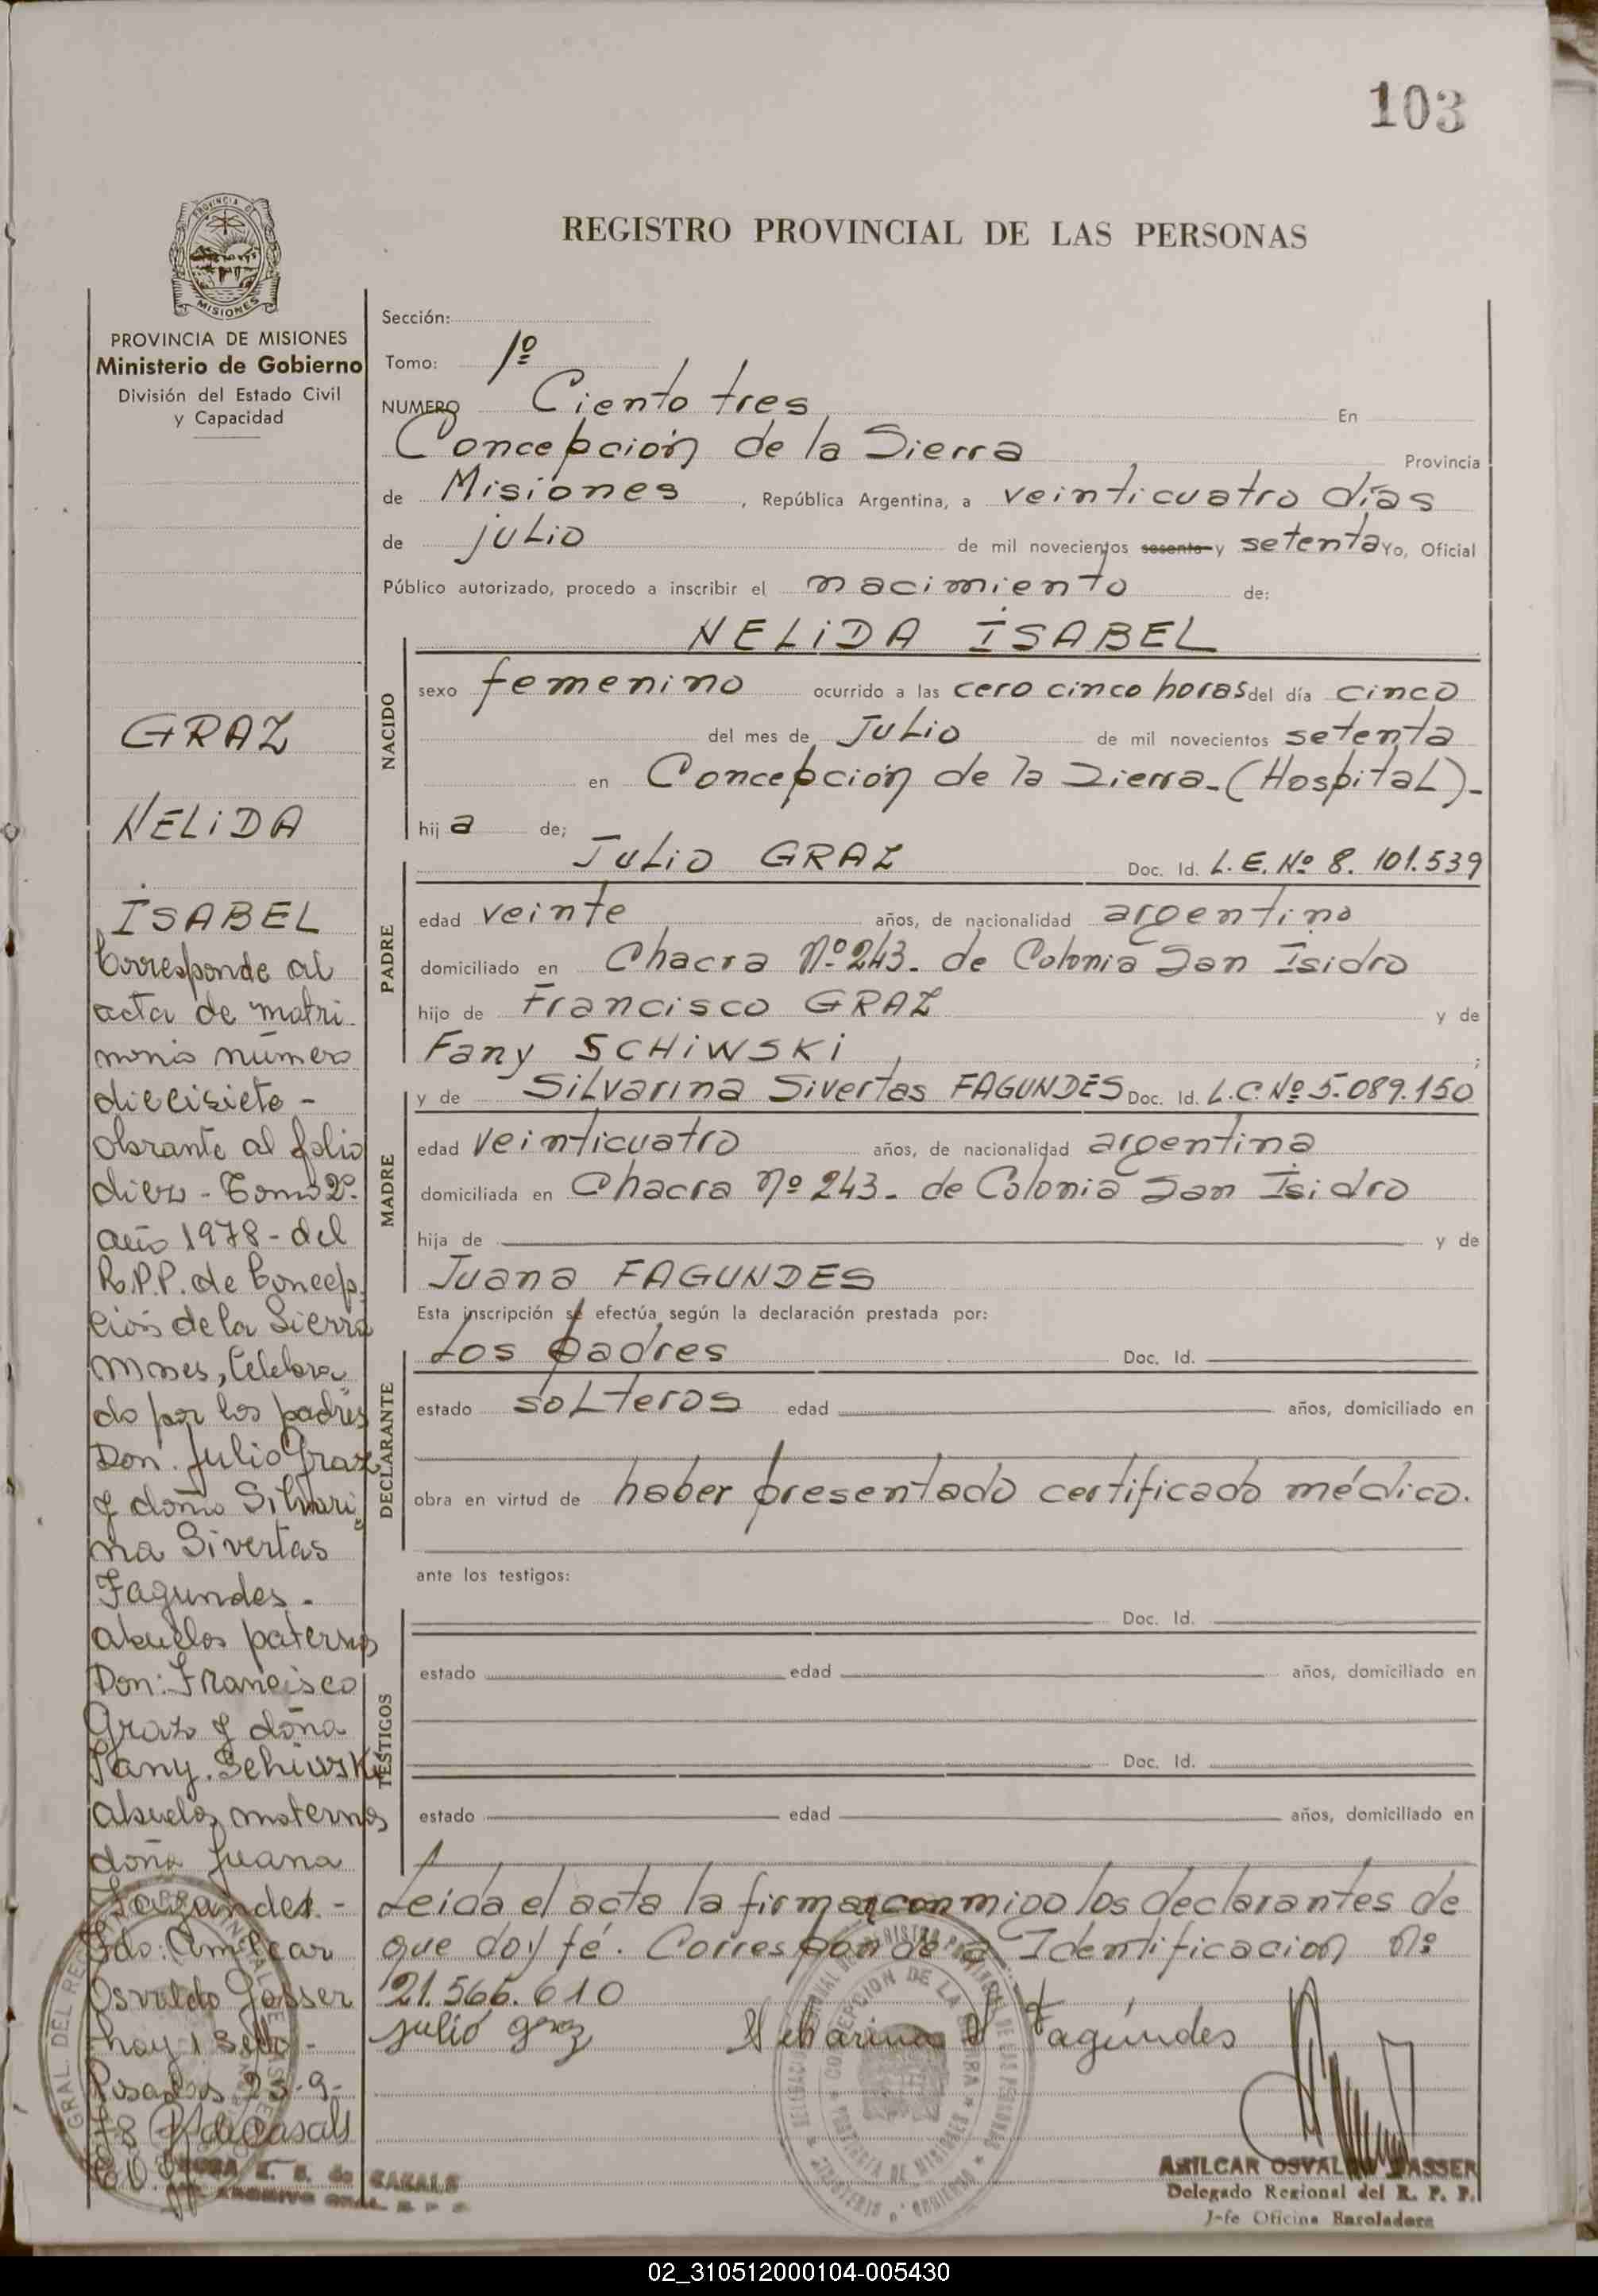 103
REGISTRO PROVINCIAL DE LAS PERSONAS
PROVINCIA DE MISIONES
Ministerio de Gobierno
División del Estado Civil
y Capacidad
GRAZ
NELIDA
ISABEL
Corresponde al
acta de matri
monio número
diecisiete -
obrante al folio
diez - Tomo 2º.
año 1978 - del
R.P.P. de Concep
ción de la Sierra
Mnes, Celebra
do por los padres
Don. Julio Graz
y doña Silvari
na Sivertas
Fagundes.
abuelos paternos
Don: Francisco
Graz y doña
Fany. Schiwski
abuelos maternos
doña Juana
Fagundes. -
Fdo: Amilcar
Osvaldo Gasser
hoy 1 Seto -
Posadas 25-9-
78
Sección:
Tomo: 1º
NUMERO Ciento tres En
Concepción de la Sierra Provincia
de Misiones, República Argentina, a veinticuatro días
de julio de mil novecientos sesenta y setenta Yo, Oficial
Público autorizado, procedo a inscribir el nacimiento de:
NELIDA ISABEL
NACIDO
sexo femenino ocurrido a las cero cinco horas del día cinco
del mes de Julio de mil novecientos setenta
en Concepción de la Sierra-(Hospital)-
hij a de;
PADRE
Julio GRAZ Doc. Id. L.E. Nº 8.101.539
edad veinte años, de nacionalidad argentino
domiciliado en Chacra Nº 243- de Colonia San Isidro
hijo de Francisco GRAZ y de
Fany SCHIWSKI ;
MADRE
y de Silvarina Sivertas FAGUNDES Doc. Id. L.C. Nº 5.089.150
edad veinticuatro años, de nacionalidad argentina
domiciliada en Chacra Nº 243- de Colonia San Isidro
hija de y de
Juana FAGUNDES
Esta inscripción se efectúa según la declaración prestada por:
DECLARANTE
Los padres Doc. Id.
estado solteros edad años, domiciliado en
obra en virtud de haber presentado certificado médico.
ante los testigos:
TESTIGOS
Doc. Id.
estado edad años, domiciliado en
Doc. Id.
estado edad años, domiciliado en
Leida el acta la firman conmigo los declarantes de
que doy fé. Corresponde a Identificacion Nº
21.566.610
julio graz Silbarina S Fagúndes
AMILCAR OSVALDO GASSER
Delegado Regional del R. P. P.
Jefe Oficina Enroladora
02_310512000104-005430